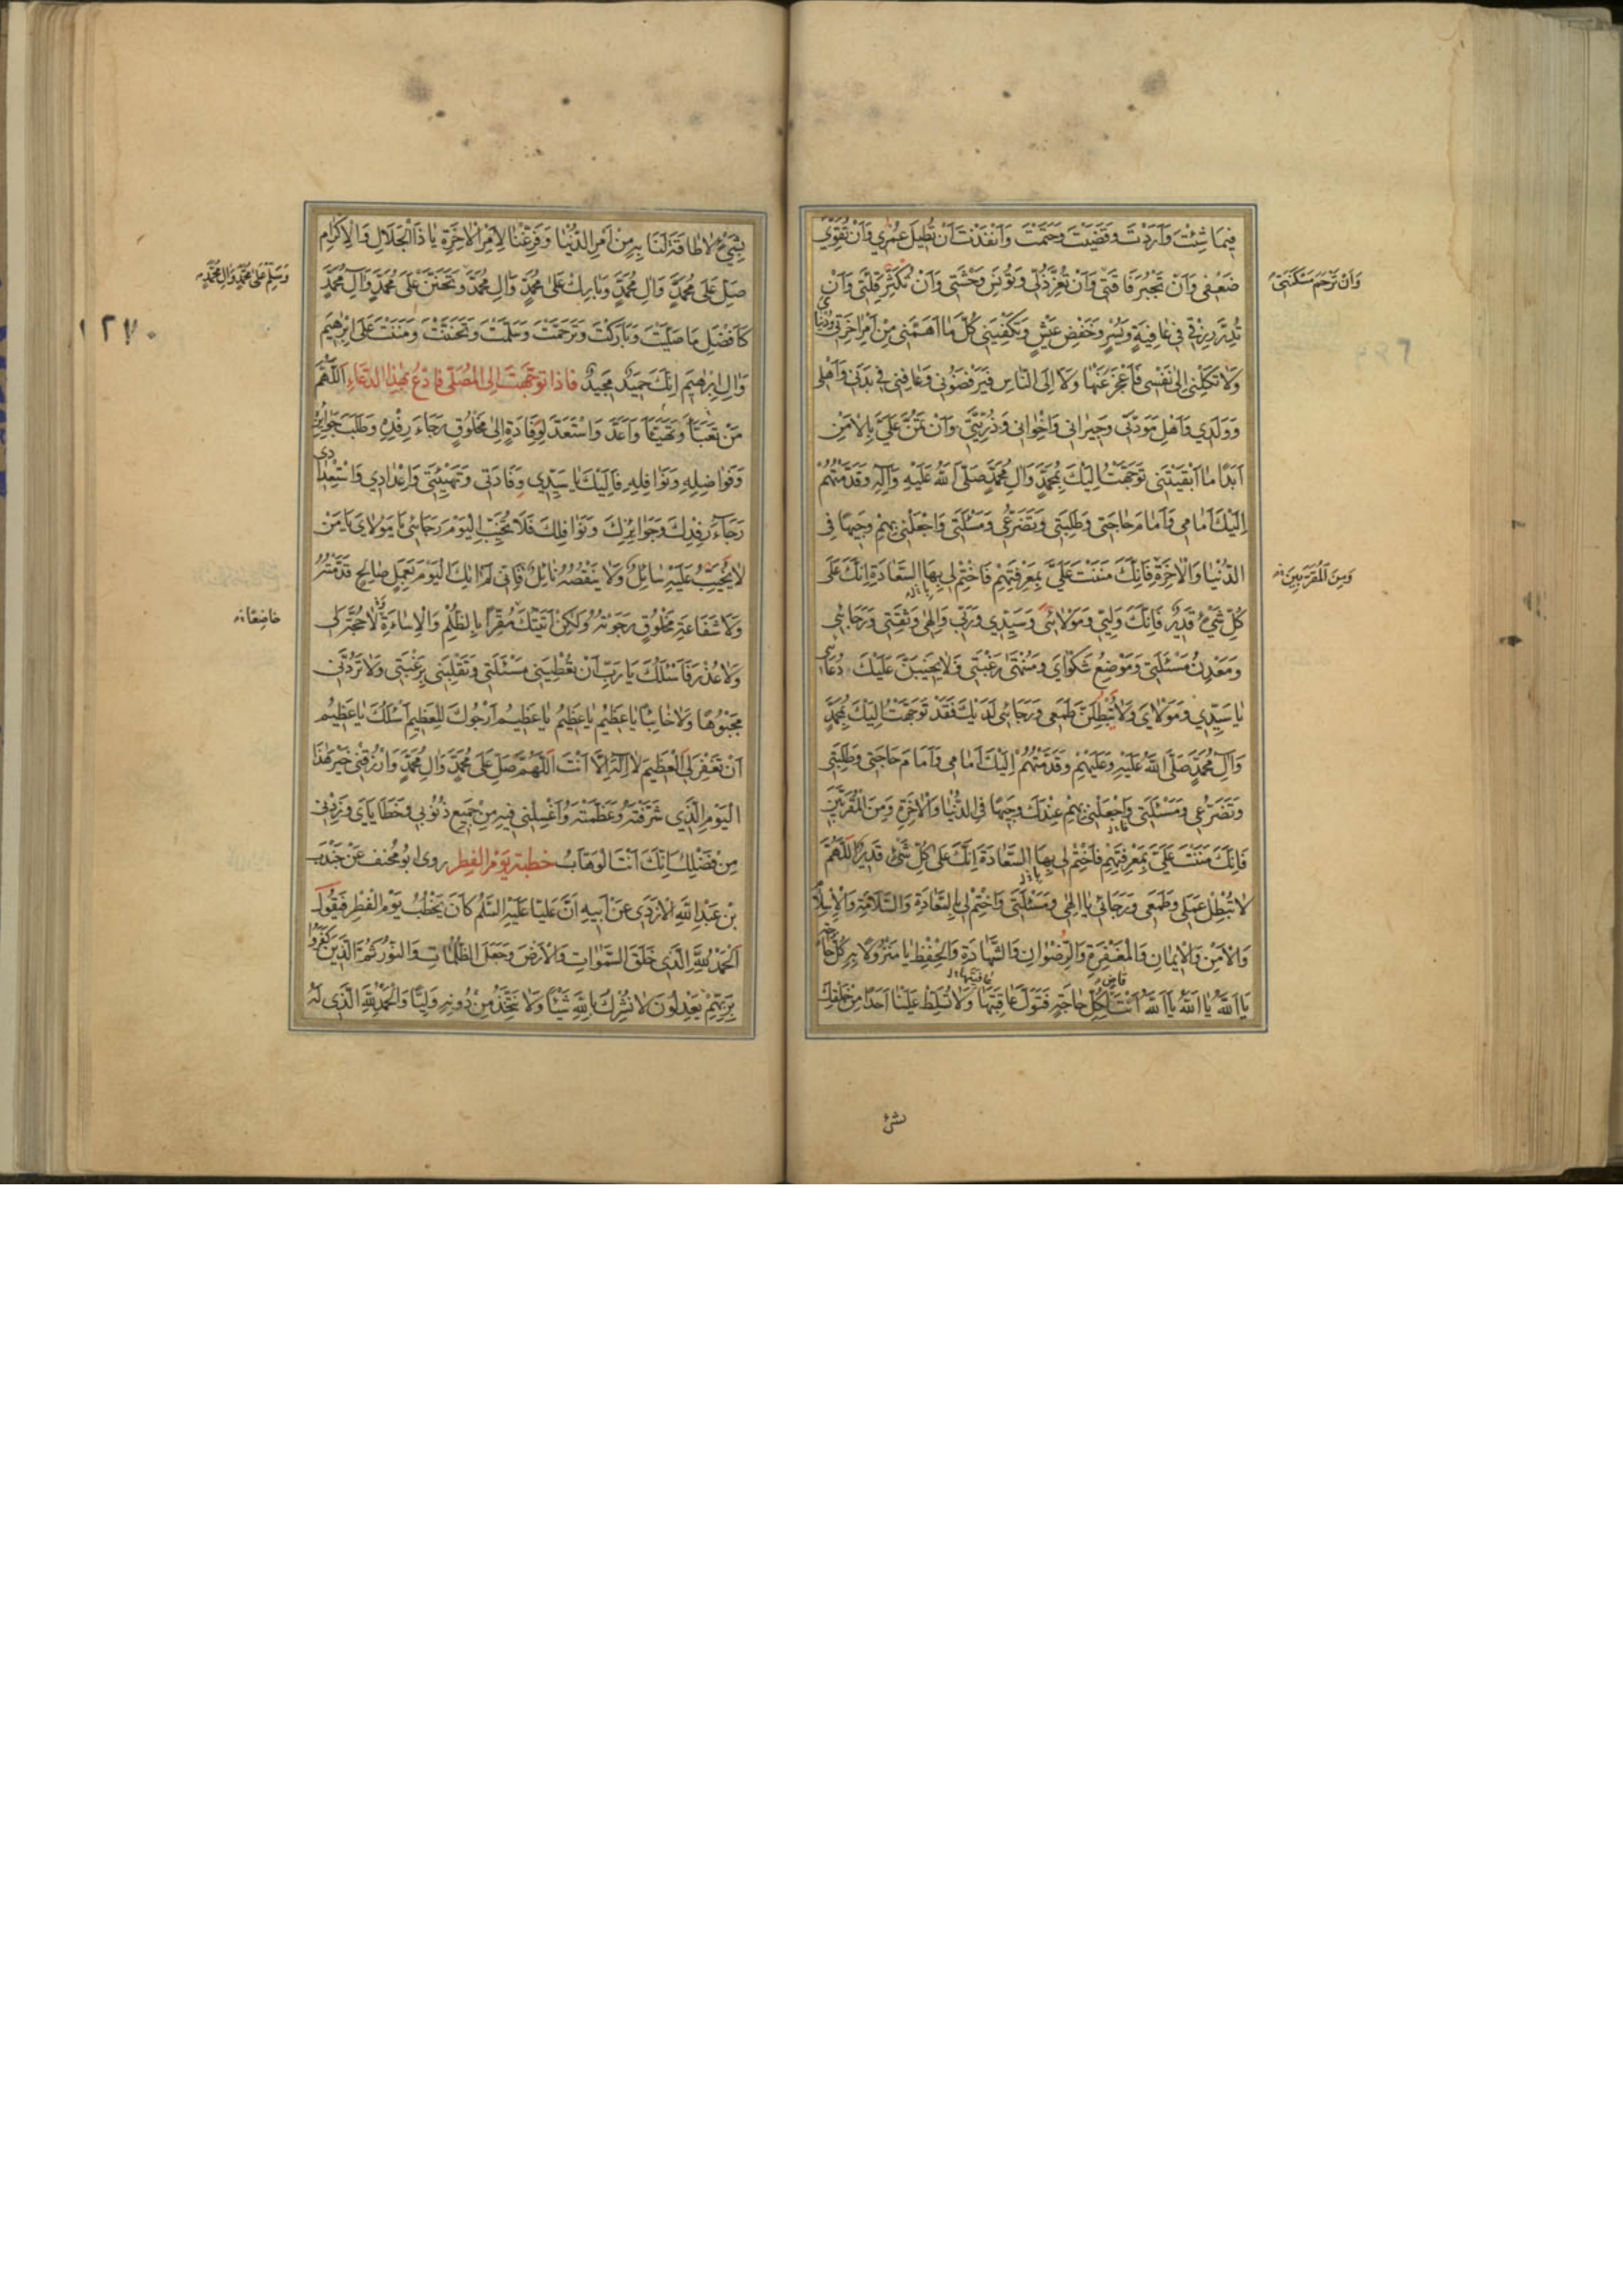 فِيمَا شِئْتَ وَاَرَدْتَ وَقَضَيْتَ وَحَتَمْتَ وَاَنْفَذْتَ اَنْ تُطِيلَ عُمْرِي وَاَنْ تُقَوِّيَ
ضَعْفِي وَاَنْ تَجْبُرَ فَاقَتِي وَاَنْ تُعِزَّ ذُلِّي وَتُونِسَ وَحْشَتِي وَاَنْ تُكَثِّرَ قِلَّتِي وَاَنْ
وَاَنْ تَرْحَمَ مَسْكَنَتِي
تُدِرَّ رِزْقِي فِي عَافِيَةٍ وَيُسْرٍ وَخَفْضِ عَيْشٍ وَتَكْفِيَنِي كُلَّ مَا اَهَمَّنِي مِنْ اَمْرِ اٰخِرَتِي وَدُنْيَايَ
وَلَا تَكِلْنِي اِلٰى نَفْسِي فَاَعْجَزَ عَنْهَا وَلَا اِلَى النَّاسِ فَيَرْفُضُونِي وَعَافِنِي فِي بَدَنِي وَاَهْلِي
وَوَلَدِي وَاَهْلِ مَوَدَّتِي وَجِيرَانِي وَاِخْوَانِي وَذُرِّيَّتِي وَاَنْ تَمُنَّ عَلَيَّ بِالْاَمْنِ
اَبَدًا مَا اَبْقَيْتَنِي تَوَجَّهْتُ اِلَيْكَ بِمُحَمَّدٍ وَاٰلِ مُحَمَّدٍ صَلَّى اللّٰهُ عَلَيْهِ وَاٰلِهِ وَقَدَّمْتُهُمْ
اِلَيْكَ اَمَامِي وَاَمَامَ حَاجَتِي وَطَلِبَتِي وَتَضَرُّعِي وَمَسْئَلَتِي وَاجْعَلْنِي بِهِمْ وَجِيهًا فِي
الدُّنْيَا وَالْاٰخِرَةِ فَاِنَّكَ مَنَنْتَ عَلَيَّ بِمَعْرِفَتِهِمْ فَاخْتِمْ لِي بِهَا السَّعَادَةَ اِنَّكَ عَلٰى
وَمِنَ الْمُقَرَّبِينَ
كُلِّ شَيْءٍ قَدِيرٌ فَاِنَّكَ وَلِيِّي وَمَوْلَائِي وَسَيِّدِي وَرَبِّي وَاِلٰهِي وَثِقَتِي وَرَجَائِي
وَمَعْدِنُ مَسْئَلَتِي وَمَوْضِعُ شَكْوَايَ وَمُنْتَهٰى رَغْبَتِي فَلَا يَخِيبَنَّ عَلَيْكَ دُعَائِي
يَا سَيِّدِي وَمَوْلَايَ وَلَا تُبْطِلَنَّ طَمَعِي وَرَجَائِي لَدَيْكَ فَقَدْ تَوَجَّهْتُ اِلَيْكَ بِمُحَمَّدٍ
وَاٰلِ مُحَمَّدٍ صَلَّى اللّٰهُ عَلَيْهِ وَعَلَيْهِمْ وَقَدَّمْتُهُمْ اِلَيْكَ اَمَامِي وَاَمَامَ حَاجَتِي وَطَلِبَتِي
وَتَضَرُّعِي وَمَسْئَلَتِي وَاجْعَلْنِي بِهِمْ عِنْدَكَ وَجِيهًا فِي الدُّنْيَا وَالْاٰخِرَةِ وَمِنَ الْمُقَرَّبِينَ
فَاِنَّكَ مَنَنْتَ عَلَيَّ بِمَعْرِفَتِهِمْ فَاخْتِمْ لِي بِهَا السَّعَادَةَ اِنَّكَ عَلٰى كُلِّ شَيْءٍ قَدِيرٌ اَللّٰهُمَّ
لَا تُبْطِلْ عَمَلِي وَطَمَعِي وَرَجَائِي يَا اِلٰهِي وَمَسْئَلَتِي وَاخْتِمْ لِي بِالسَّعَادَةِ وَالسَّلَامَةِ وَالْاِسْلَامِ
وَالْاَمْنِ وَالْاِيمَانِ وَالْمَغْفِرَةِ وَالرِّضْوَانِ وَالشَّهَادَةِ وَالْحِفْظِ يَا مَنْزُولًا بِهِ كُلُّ حَاجَةٍ
يَا اَللّٰهُ يَا اَللّٰهُ يَا اَللّٰهُ اَنْتَ لِكُلِّ حَاجَةٍ فَتَوَلَّ عَاقِبَتَهَا وَلَا تُسَلِّطْ عَلَيْنَا اَحَدًا مِنْ خَلْقِكَ
بِشَيْءٍ لَا طَاقَةَ لَنَا بِهِ مِنْ اَمْرِ الدُّنْيَا وَفَرِّغْنَا لِاَمْرِ الْاٰخِرَةِ يَا ذَا الْجَلَالِ وَالْاِكْرَامِ
صَلِّ عَلٰى مُحَمَّدٍ وَاٰلِ مُحَمَّدٍ وَبَارِكْ عَلٰى مُحَمَّدٍ وَاٰلِ مُحَمَّدٍ وَتَحَنَّنْ عَلٰى مُحَمَّدٍ وَاٰلِ مُحَمَّدٍ
وَسَلِّمْ عَلٰى مُحَمَّدٍ وَاٰلِ مُحَمَّدٍ
كَاَفْضَلِ مَا صَلَّيْتَ وَبَارَكْتَ وَتَرَحَّمْتَ وَسَلَّمْتَ وَتَحَنَّنْتَ وَمَنَنْتَ عَلٰى اِبْرٰهِيمَ
١٢٧٠
وَاٰلِ اِبْرٰهِيمَ اِنَّكَ حَمِيدٌ مَجِيدٌ فاذا توجّهت الى المصلّى فادع بهذا الدّعاء اَللّٰهُمَّ
مَنْ تَعَبَّاَ وَتَهَيَّاَ وَاَعَدَّ وَاسْتَعَدَّ لِوِفَادَةٍ اِلٰى مَخْلُوقٍ رَجَاءَ رِفْدِهِ وَطَلَبَ جَوَائِزِهِ
وَفَوَاضِلِهِ وَنَوَافِلِهِ فَاِلَيْكَ يَا سَيِّدِي وِفَادَتِي وَتَهْيِئَتِي وَاِعْدَادِي وَاسْتِعْدَادِي
رَجَاءَ رِفْدِكَ وَجَوَائِزِكَ وَنَوَافِلِكَ فَلَا تُخَيِّبِ الْيَوْمَ رَجَائِي يَا مَوْلَايَ يَا مَنْ
لَا يَخِيبُ عَلَيْهِ سَائِلٌ وَلَا يَنْقُصُهُ نَائِلٌ فَاِنِّي لَمْ اٰتِكَ الْيَوْمَ بِعَمَلٍ صَالِحٍ قَدَّمْتُهُ
وَلَا شَفَاعَةِ مَخْلُوقٍ رَجَوْتُهُ وَلٰكِنْ اَتَيْتُكَ مُقِرًّا بِالظُّلْمِ وَالْاِسَاءَةِ لَا حُجَّةَ لِي
خَاضِعًا
وَلَا عُذْرَ فَاَسْئَلُكَ يَا رَبِّ اَنْ تُعْطِيَنِي مَسْئَلَتِي وَتَقْلِبَنِي بِرَغْبَتِي وَلَا تَرُدَّنِي
مَجْبُوهًا وَلَا خَائِبًا يَا عَظِيمُ يَا عَظِيمُ يَا عَظِيمُ اَرْجُوكَ لِلْعَظِيمِ اَسْئَلُكَ يَا عَظِيمُ
اَنْ تَغْفِرَ لِيَ الْعَظِيمَ لَا اِلٰهَ اِلَّا اَنْتَ اَللّٰهُمَّ صَلِّ عَلٰى مُحَمَّدٍ وَاٰلِ مُحَمَّدٍ وَارْزُقْنِي خَيْرَ هٰذَا
الْيَوْمِ الَّذِي شَرَّفْتَهُ وَعَظَّمْتَهُ وَاغْسِلْنِي فِيهِ مِنْ جَمِيعِ ذُنُوبِي وَخَطَايَايَ وَزِدْنِي
مِنْ فَضْلِكَ اِنَّكَ اَنْتَ الْوَهَّابُ خطبة يوم الفطر روى ابو مخنف عَنْ جُنْدَبِ
بْنِ عَبْدِ اللّٰهِ الْاَزْدِيِّ عَنْ اَبِيهِ اَنَّ عَلِيًّا عَلَيْهِ السَّلٰمُ كَانَ يَخْطُبُ يَوْمَ الْفِطْرِ فَيَقُولُ
اَلْحَمْدُ لِلّٰهِ الَّذِي خَلَقَ السَّمٰوَاتِ وَالْاَرْضَ وَجَعَلَ الظُّلُمَاتِ وَالنُّورَ ثُمَّ الَّذِينَ كَفَرُوا
بِرَبِّهِمْ يَعْدِلُونَ لَا نُشْرِكُ بِاللّٰهِ شَيْئًا وَلَا نَتَّخِذُ مِنْ دُونِهِ وَلِيًّا وَالْحَمْدُ لِلّٰهِ الَّذِي لَهُ